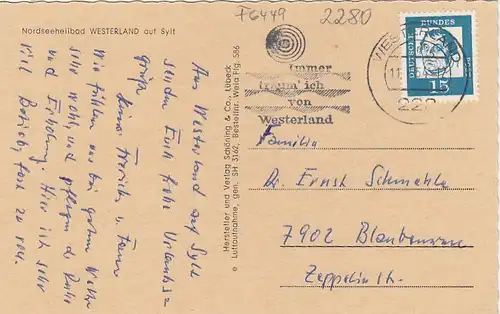 F6449
2280
Nordseeheilbad WESTERLAND auf Sylt
DEUTSCHE BUNDESPOST
15
WESTERLAND
Immer
träum' ich
von
Westerland
Hersteller und Verlag Schöning & Co., Lübeck
Luftaufnahme, gen. SH 3162, Bestellnr. Wela Flg. 586
Aus Westerland auf Sylt
senden Euch frohe Urlaubs-
grüße
Heinz u. Frau
Wir fühlen uns bei gutem Wetter
sehr wohl, und pflegen der Ruhe
und Erholung. Hier ist sehr
viel Betrieb, fast zu viel.
Familie
Dr. Ernst Schmahle
7902 Blaubeuren
Zeppelinstr.